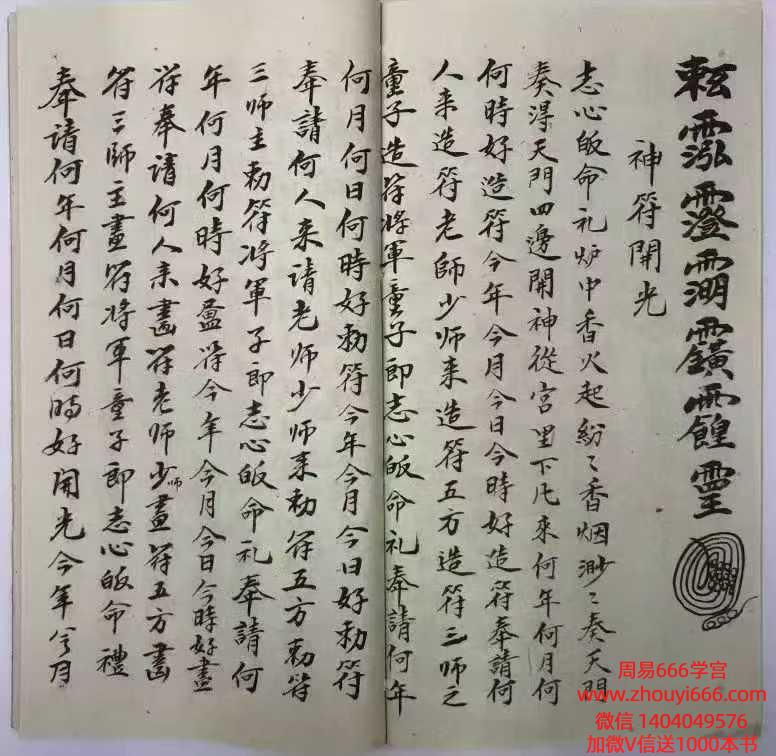 神符開光
志心皈命礼炉中香火起紛〻香烟渺〻奏天門
奏得天門四邊開神從宮里下凡来何年何月何
何時好造符今年今月今日今時好造符奉請何
人来造符老師少师来造符五方造符三师之
童子造符將軍童子即志心皈命礼奉請何年
何月何日何時好勑符今年今月今日好勑符
奉請何人来請老师少师来勑符五方勑符
三师主勑符將軍子即志心皈命礼奉請何
年何月何時好畫符今年今月今日今時好畫
符奉請何人来畫符老师少师畫符五方畫
符三師主畫符將軍童子即志心皈命禮
奉請何年何月何日何時好開光今年今月
周易666学宫
www.zhouyi666.com
微信 1404049576
加微V信送1000本书